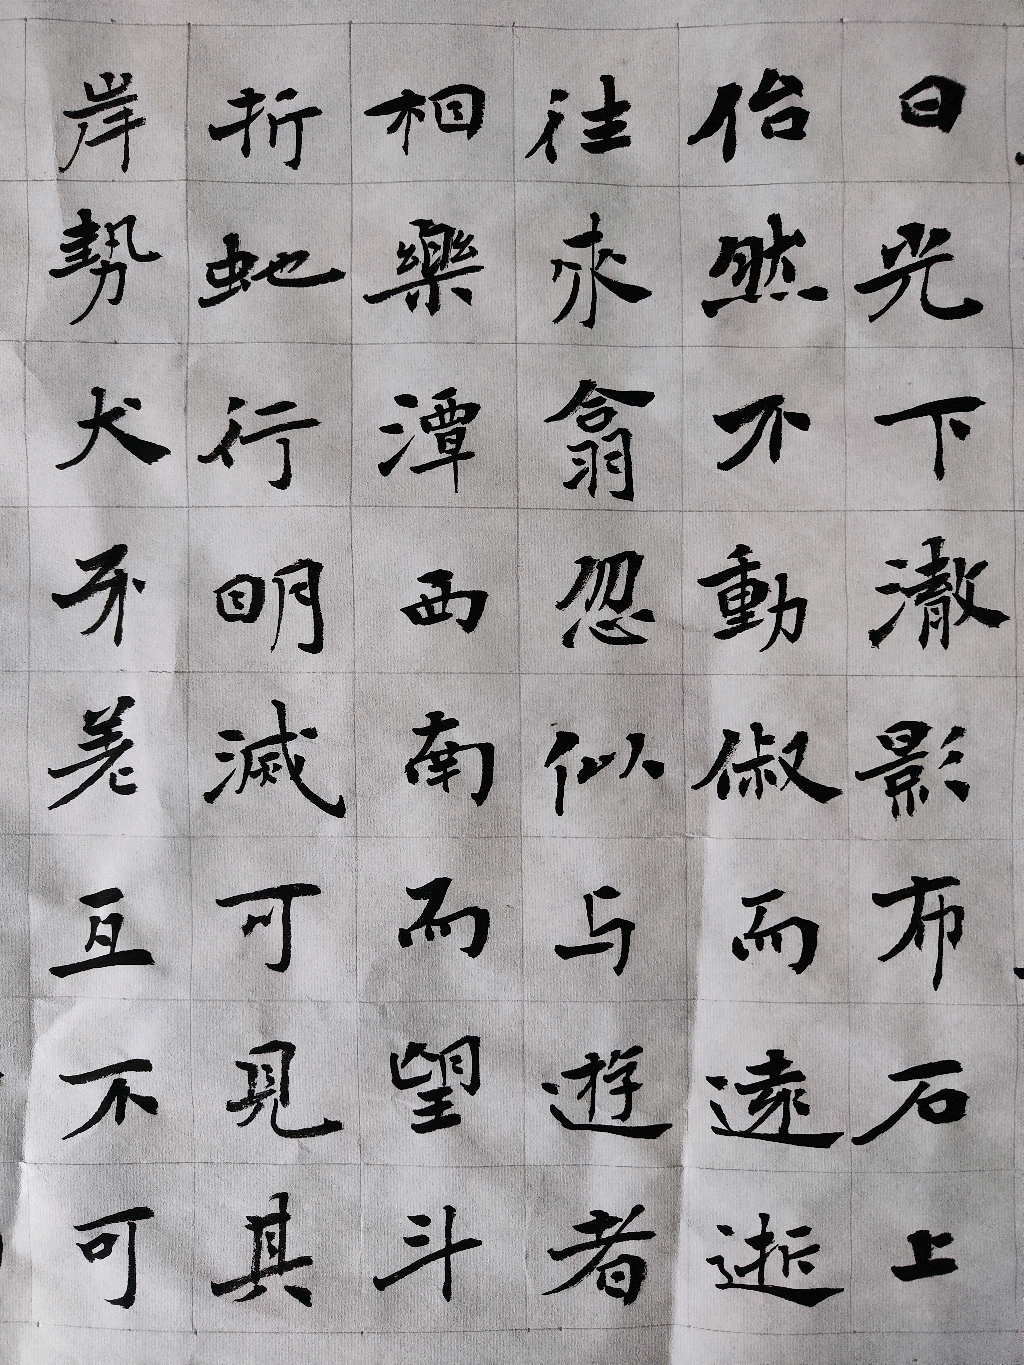 日光下澈影布石上
佁然不動俶而遠逝
往来翕忽似与遊者
相樂潭西南而望斗
折虵行明滅可見其
岸勢犬牙差互不可